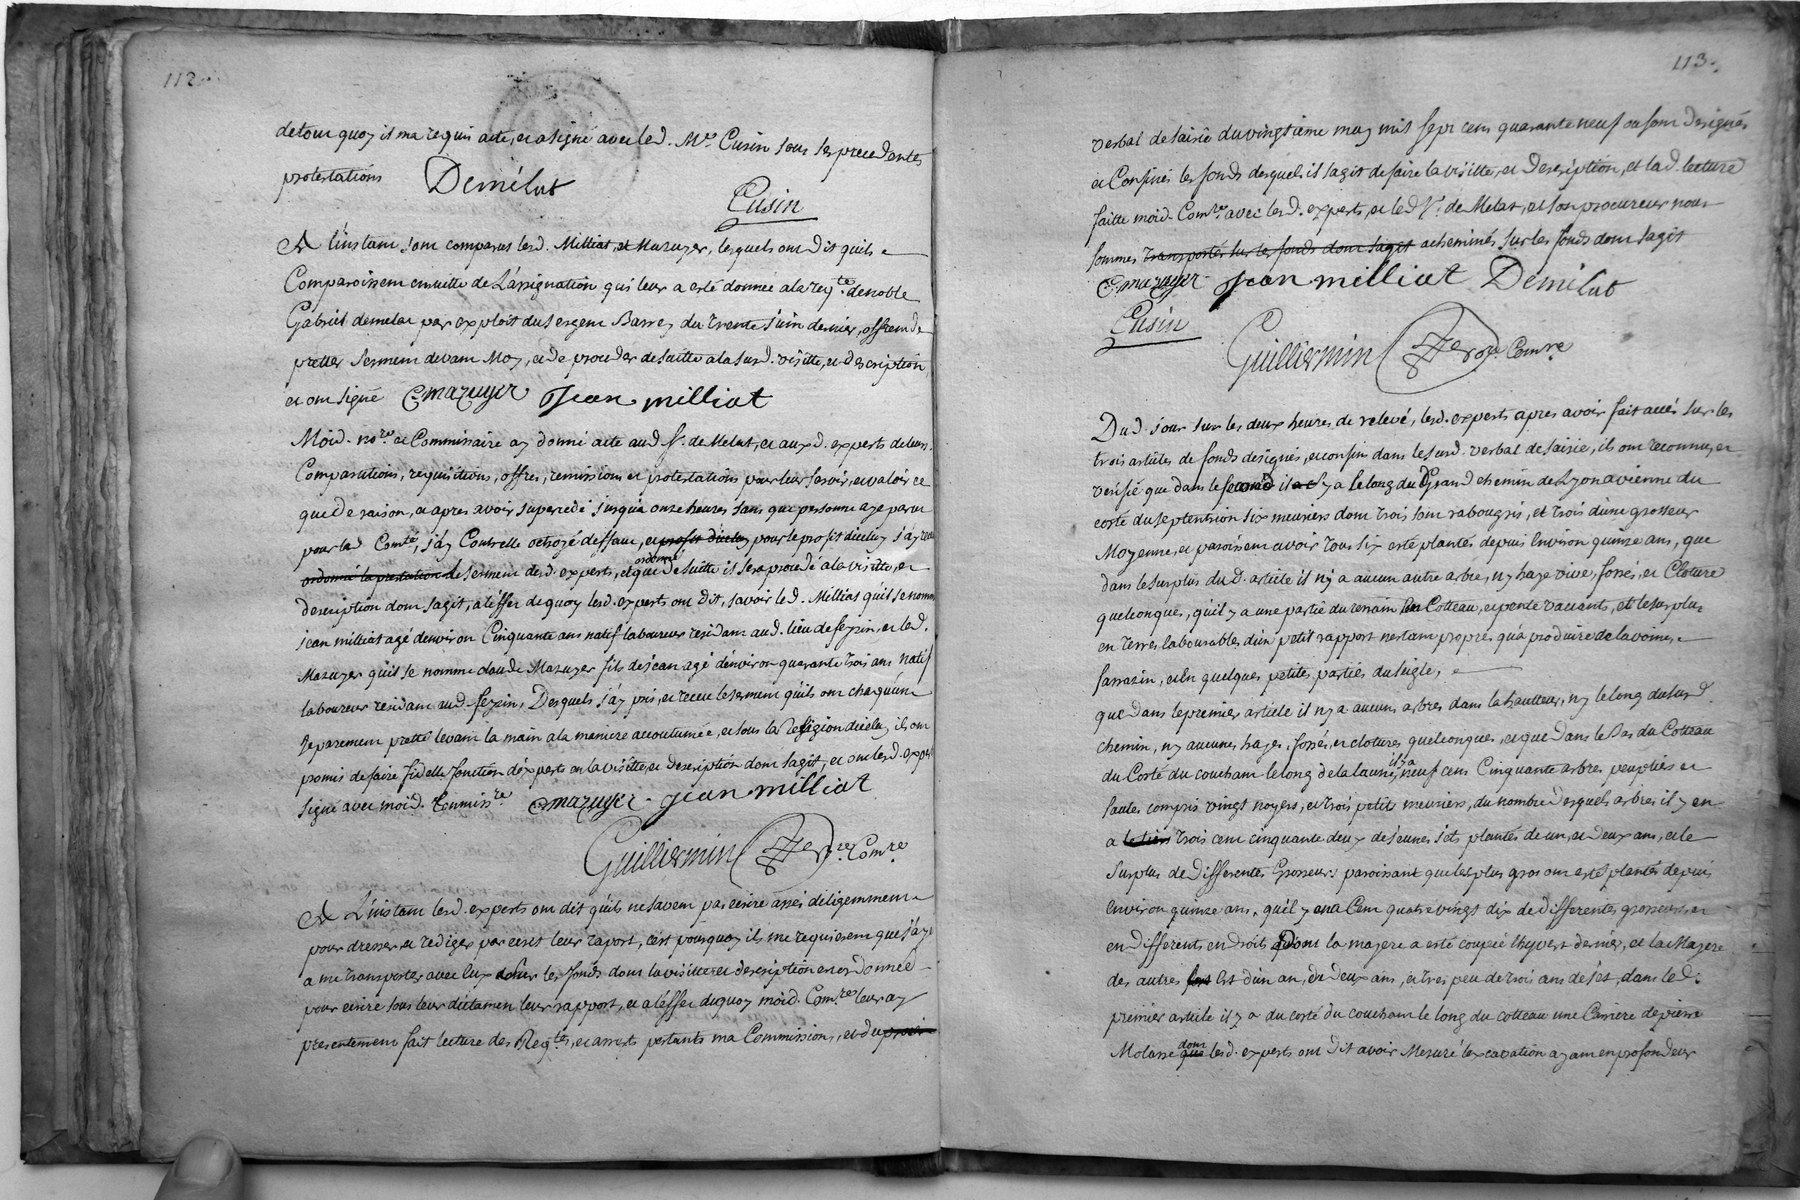 112.
de tout quoy il ma requis acte, et a signé avec led. Me. Cusin sous ses precedentes
protestations Demélat
Cusin
A L'instant sont comparus lesd. Milliat, et Mazuyer, lesquels ont dit quils
Comparoissent ensuitte de L'assignation qui leur a esté donnée a la reqte. de noble
Gabriel demelat par exploit du sergent Barrey du trente Juin dernier, offrent de
pretter serment devant Moy, et de proceder de suitte a la susd. visitte, et description,
et ont signé C mazuyer Jean milliat
Moid. nore. et Commissaire ay donné acte aud. Sr. de Melat, et auxd. experts de leurs
Comparutions, requisitions, offres, remissions et protestations pour leur servir, et valoir ce
que de raison, et apres avoir supercedé jusqua onze heures sans que personne aye paru
pour lad Comté, j'ay Contrelle octroyé deffaut, et profit diceluy pour le profit diceluy j'ay receu
ordonné la prestation de serment desd. experts, et ordonné que de suitte il sera procedé a la visitte, et
description dont sagit, a l'effet de quoy lesd. experts ont dit, savoir led. Milliat qu'il se nomme
jean milliat agé denviron Cinquante ans natif laboureur residant aud. lieu de feyzin, et led.
Mazuyer qu'il se nomme claude Mazuyer fils de jean agé d'environ quarante trois ans natif
laboureur residant aud. feyzin, Desquels j'ay pris, et receu le serment qu'ils ont chacun
separement pretté levant la main a la maniere accoutumée, et sous la Religion diceluy ils ont
promis de faire fidelle fonction d'experts en la visitte, et description dont sagit, et ont lesd. experts
signé avec moid. Commissre. C mazuyer. Jean milliat
Guilliermin nore. Comre.
A L'instant lesd. experts ont dit qu'ils ne savent pas ecrire assés diligemment
pour dresser, et rediger par ecrit leur raport, cest pourquoy ils me requierent que j'aye
a me transporter avec Eux sur les fonds dont la visitte et description est ordonnée
pour ecrire sous leur dictamen leur rapport, et a leffet duquoy moid. Comre. leur ay
presentement fait lecture des Reqtes, et arrests portants ma Commission, et du
113.
verbal de saisie du vingtieme may mil sept cent quarante neuf ou sont designés
et Confinés les fonds desquels il sagit de faire la visitte, et description, et lad. lecture
faitte moid. Comre. avec lesd. experts, et led. Sr. de Melat, et son procureur nous
sommes transportés sur les fonds dont sagit acheminés sur les fonds dont sagit
C mazuyer. Jean milliat Demélat
Cusin
Guilliermin nore. Comre.
Dud. jour sur les deux heures de relevé, lesd. experts apres avoir fait accés sur les
trois articles de fonds designés, et confins dans le susd. verbal de saisie, ils ont reconnu, et
verifié que dans le second il a y a le long du Grand chemin de Lyon a vienne du
costé du septentrion six meuriers dont trois sont rabougris, et trois d'une grosseur
Moyenne, et paroissent avoir tous six esté plantés depuis Environ quinze ans, que
dans le surplus dud. article il n'y a aucun autre arbre, ny haye vive, fossés, et Cloture
quelconque, qu'il y a une partie du terrain en Cotteau, et pente vacants, et le surplus
en Terres labourables d'un petit rapport nestant propres qu'a produire de lavoine,
sarrazin, et En quelques petites parties du seigle,
que dans le premier article il ny a aucuns arbres dans la hautteur, ny le long dusud
chemin, ny aucunes hayes, fossés, et clotures quelconques, et que Dans le Bas du Cotteau
du Costé du couchant le long de la laune il y a neuf cent Cinquante arbres peupliers et
saules compris vingt noyers, et trois petits meuriers, du nombre desquels arbres il y en
a trois cent cinquante deux de jeunes jets plantés de un, et deux ans, et le
surplus de Differentes Grosseurs paroissant que les plus gros ont estés plantés depuis
Environ quinze ans, qu'il y en a Cent quatre vingt dix de differentes grosseurs, et
en differents endroits Dont la mazere a esté coupée lhyvert dernier, et la Mazere
des autres Est d'un an, du deux ans, et tres peu de trois ans de jet, dans led.
premier article il y a du costé du couchant le long du cotteau une Carriere de pierre
Molasse que dont lesd. experts ont dit avoir Mesuré lexcavation ayant en profondeur